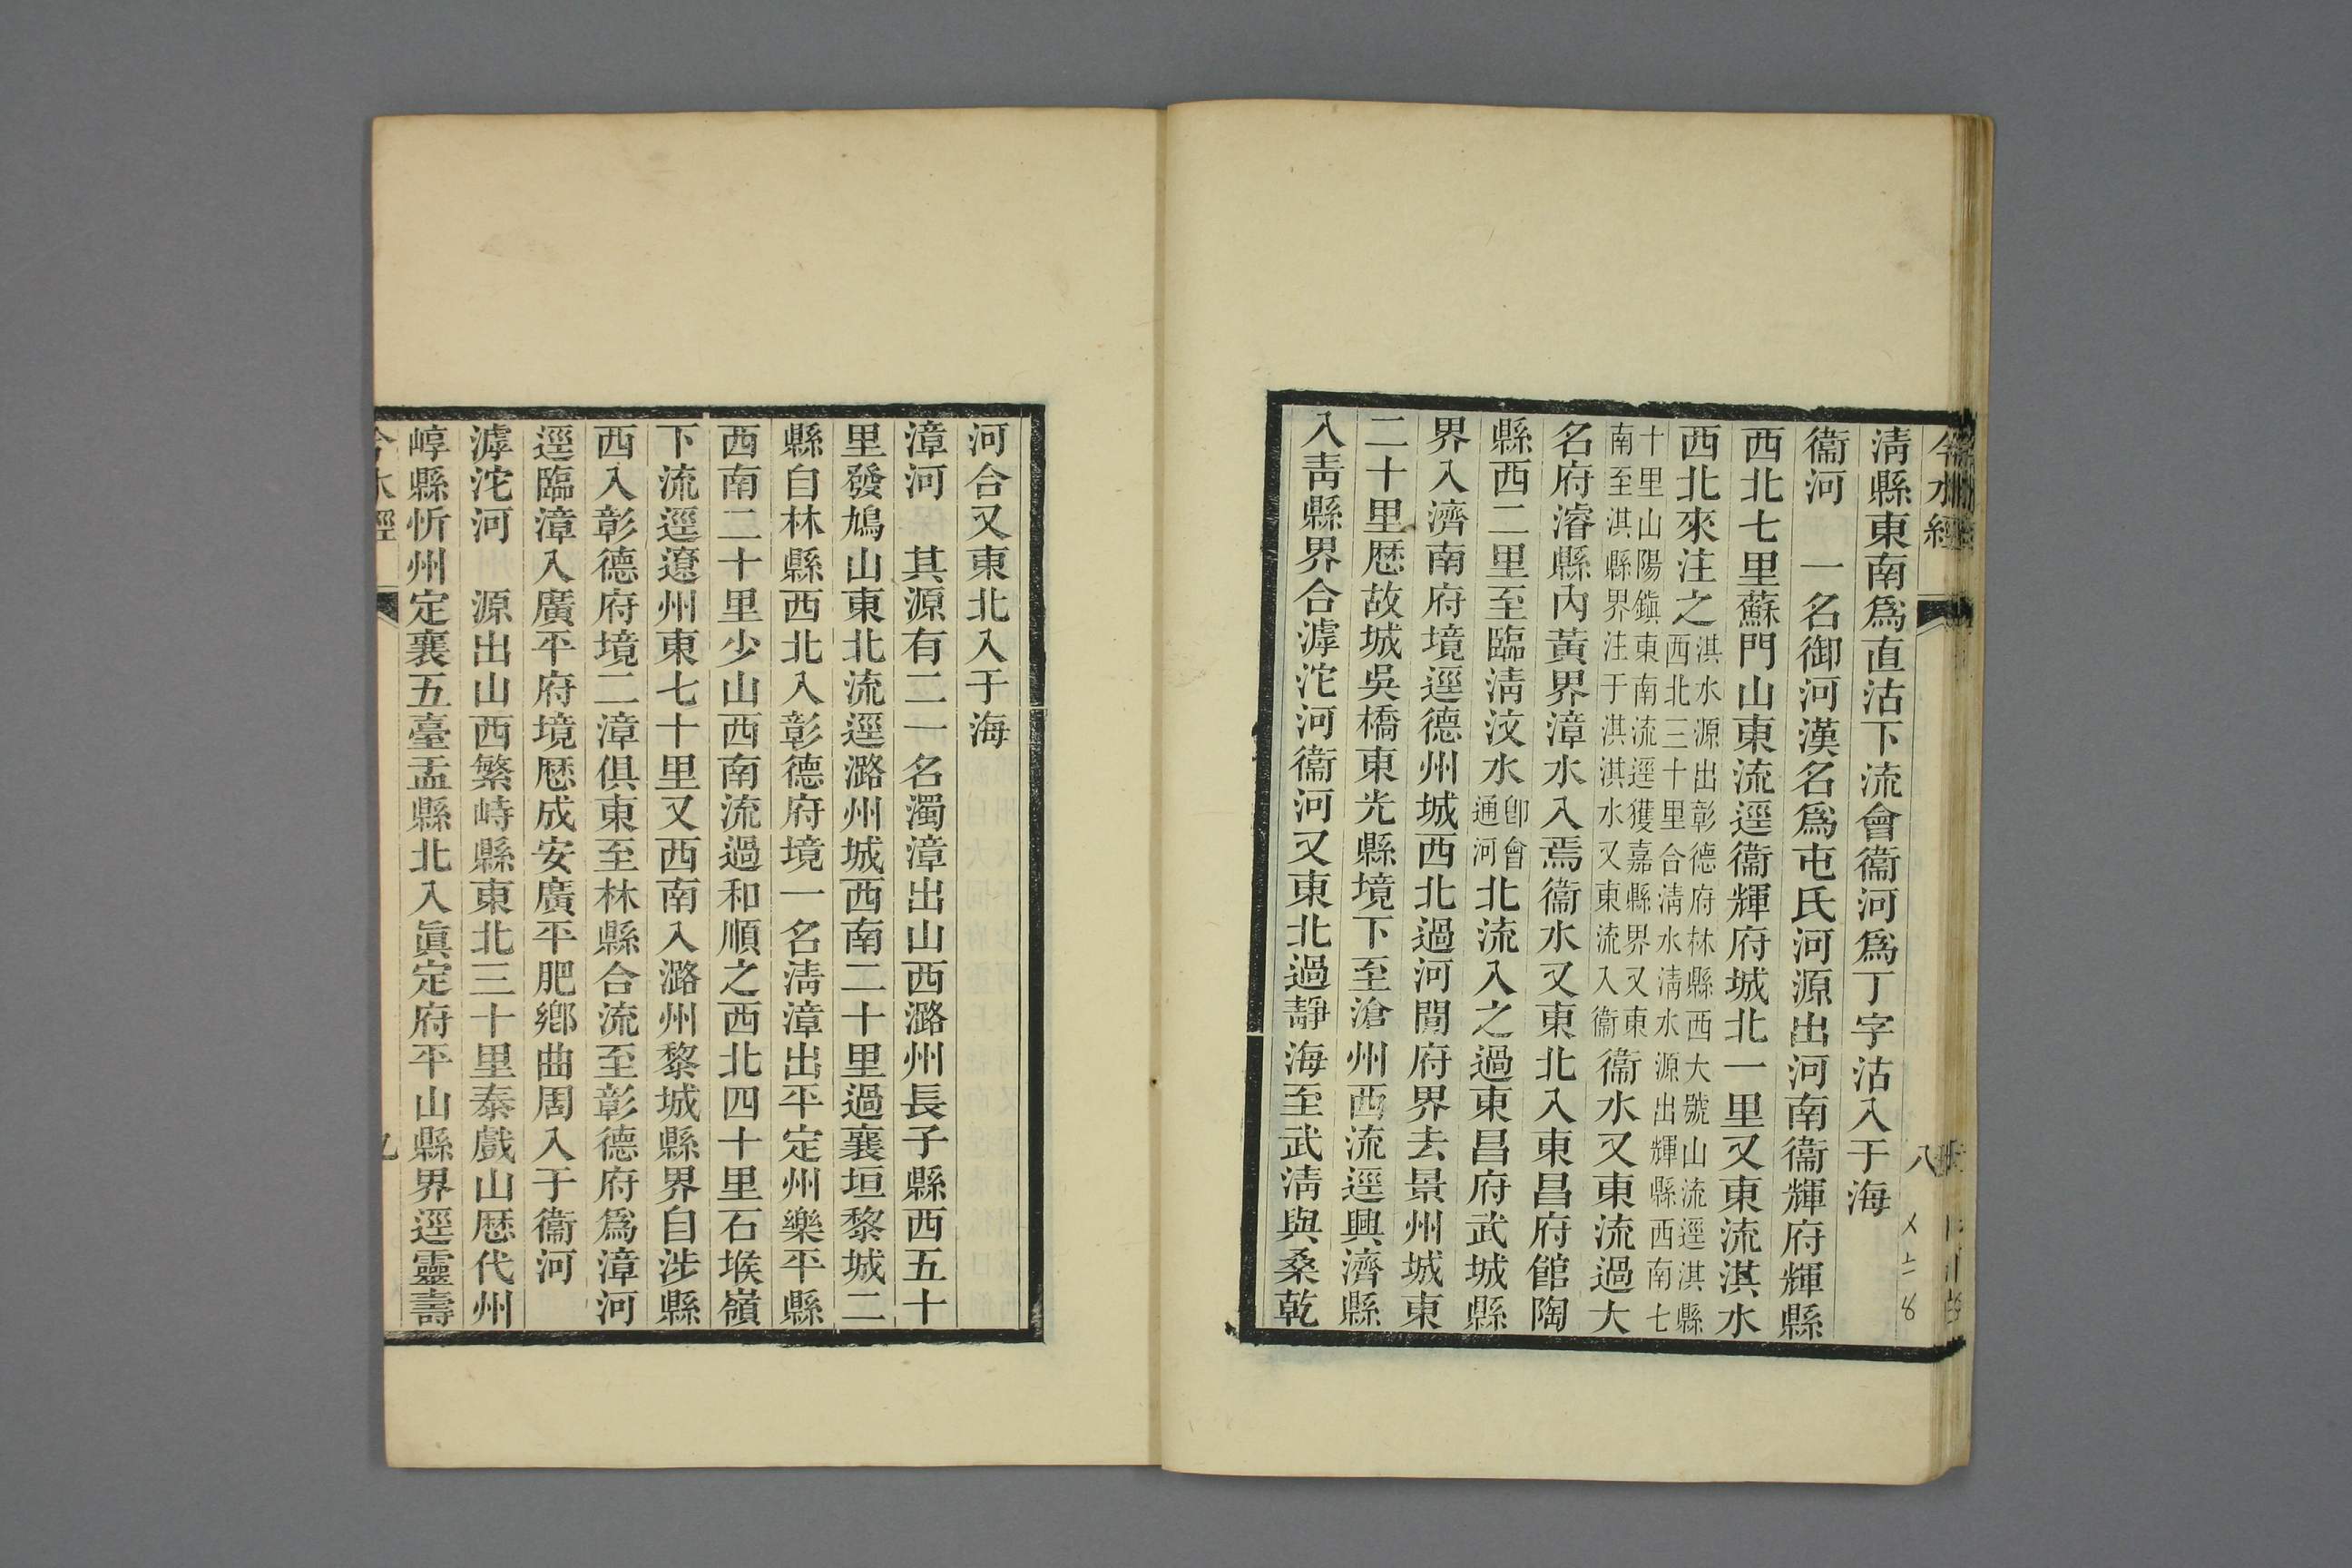 今水經
八
清縣東南爲直沽下流會衞河爲丁字沽入于海
衞河 一名御河漢名爲屯氏河源出河南衞輝府輝縣
西北七里蘇門山東流逕衞輝府城北一里又東流淇水
西北來注之淇水源出彰德府林縣西大號山流逕淇縣西北三十里合清水清水源出輝縣西南七
十里山陽鎭東南流逕獲嘉縣界又東南至淇縣界注于淇淇水又東流入衞衞水又東流過大
名府濬縣內黃界漳水入焉衞水又東北入東昌府館陶
縣西二里至臨清汶水卽會通河北流入之過東昌府武城縣
界入濟南府境逕德州城西北過河間府界去景州城東
二十里歷故城吳橋東光縣境下至滄州西流逕興濟縣
入靑縣界合滹沱河衞河又東北過靜海至武清與桑乾
河合又東北入于海
漳河 其源有二一名濁漳出山西潞州長子縣西五十
里發鳩山東北流逕潞州城西南二十里過襄垣黎城二
縣自林縣西北入彰德府境一名清漳出平定州樂平縣
西南二十里少山西南流過和順之西北四十里石堠嶺
下流逕遼州東七十里又西南入潞州黎城縣界自涉縣
西入彰德府境二漳俱東至林縣合流至彰德府爲漳河
逕臨漳入廣平府境歷成安廣平肥鄕曲周入于衞河
滹沱河 源出山西繁峙縣東北三十里泰戲山歷代州
崞縣忻州定襄五臺盂縣北入眞定府平山縣界逕靈壽
今水經
九